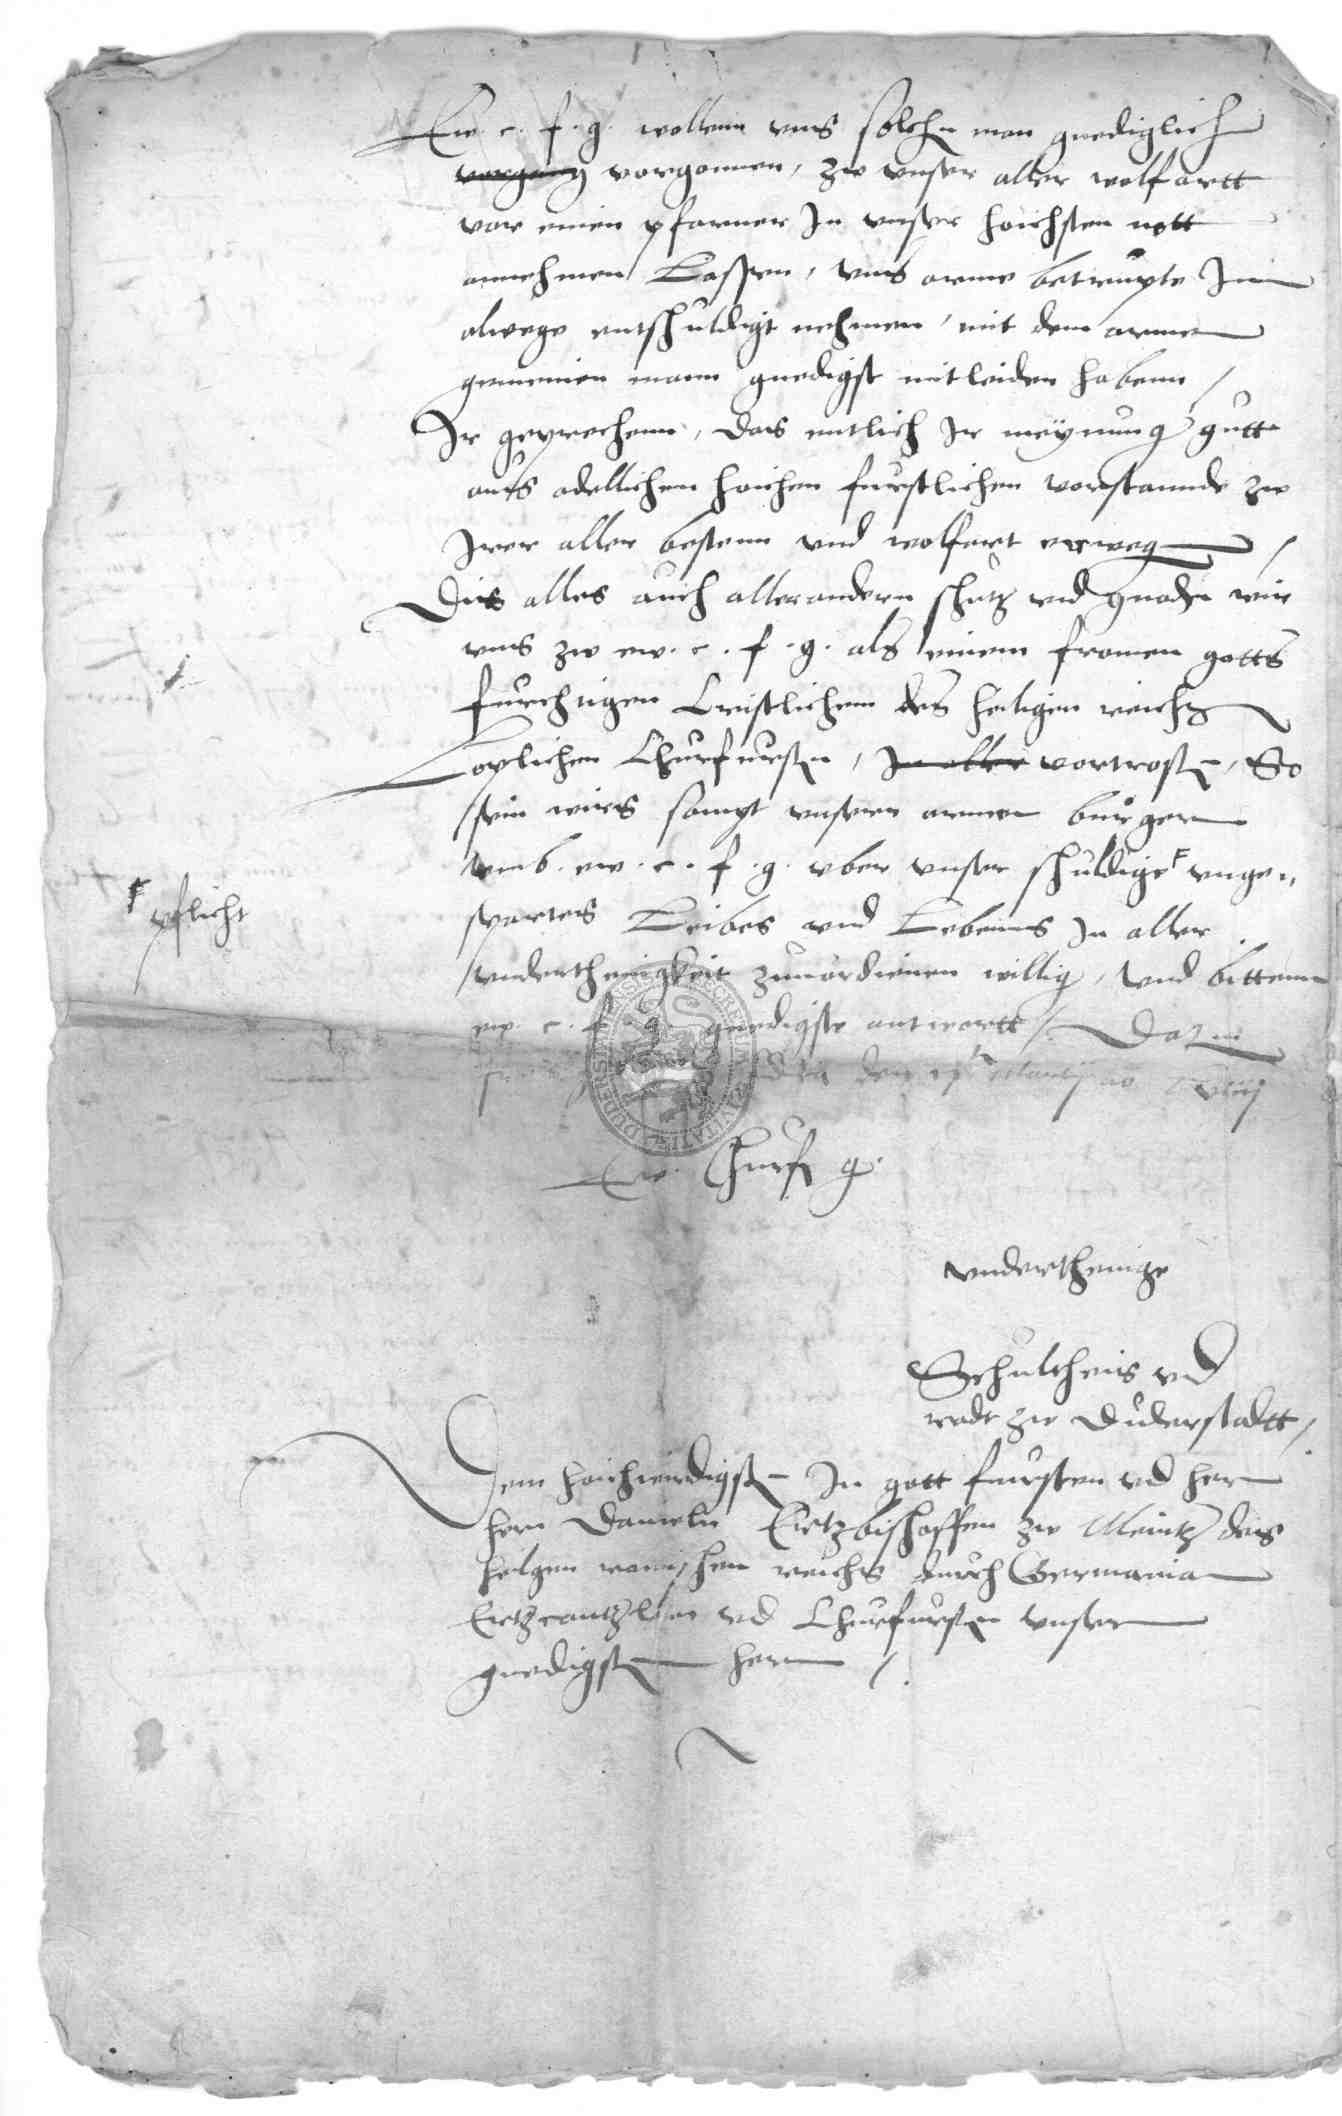 Ew. c. f. g. wollenn vns solchen man gnediglich
vorgonnen, zw vnser aller wolfartt
vor einen pfarner In vnser hoichsten nott
annehmen Lassen, vns arme betrupte Inn
alwege entschuldigt nehmen, mit dem armen
gemeinen mann gnedigst mitleiden habenn /
Ir geprechenn, das entlich Ir meÿnung gutt
aus adellichen hoichen furstlichen vorstannde zw
Irer aller bestenn vnd wolfart erwegen /
Dis alles auch aller andern schutz vnd gnaden wir
vns zw ew. c. f. g. als einem fromen gotts
furchtigen Cristlichenn des heiligen reichs
Loplichen Churfursten, In aller vortrosten, So
sein wirs sampt vnsern armen burgern
vmb. ew. c. f. g. vber vnser schuldige vngen
pflicht
sparters Leibes vnd Lebenns In aller
vnderthenigkeit zuuordienen willig, vnd bittenn
ew. c. f. g. gnedigste antwortt / Datum
den
Ew. Churf g.
vnderthenige
Schultheis vnd
radt zw Duderstadtt /
Dem hoichwirdigsten In gott fursten vnd hern
hern Danieln Ertzbischoffen zw Meintz des
helgen romischen reichs durch Germanian
Ertzcantzlern vnd Churfursten vnserm
gnedigsten hern /